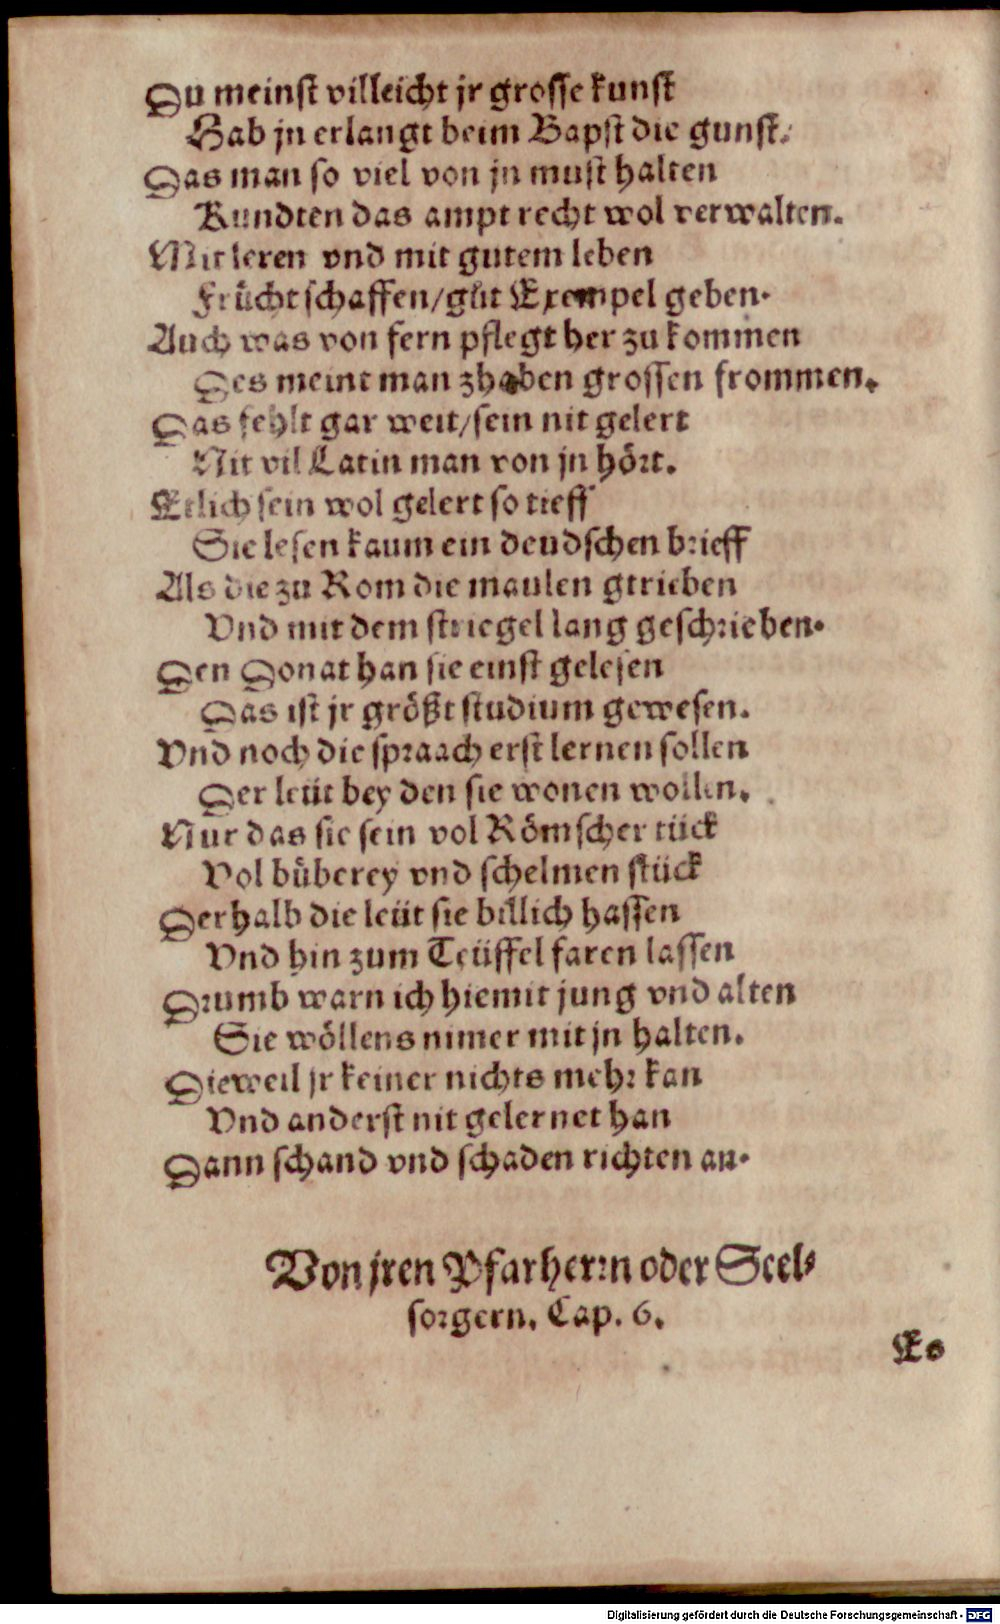 Du meinst villeicht jr grosse kunst
Hab jn erlangt beim Bapst die gunst.
Das man so viel von jn must halten
Kundten das ampt recht wol verwalten.
Mit leren vnd mit gutem leben
Frücht schaffen/gůt Exempel geben.
Auch was von fern pflegt her zu kommen
Des meint man zhaben grossen frommen.
Das fehlt gar weit/sein nit gelert
Nit vil Latin man von jn hört.
Etlich sein wol gelert so tieff
Sie lesen kaum ein deudschen brieff
Als die zu Rom die maulen gtrieben
Vnd mit dem striegel lang geschrieben.
Den Donat han sie einst gelesen
Das ist jr größt studium gewesen.
Vnd noch die spraach erst lernen sollen
Der leüt bey den sie wonen wollen.
Nur das sie sein vol Römscher tück
Vol bůberey vnd schelmen stück
Derhalb die leüt sie billich hassen
Vnd hin zum Teüffel faren lassen
Drumb warn ich hiemit jung vnd alten
Sie wöllens nimer mit jn halten.
Dieweil jr keiner nichts mehr kan
Vnd anderst nit gelernet han
Dann schand vnd schaden richten an.
Von jren Pfarherrn oder Seel-
sorgern. Cap. 6.
Es
Digitalisierung gefördert durch die Deutsche Forschungsgemeinschaft - DFG